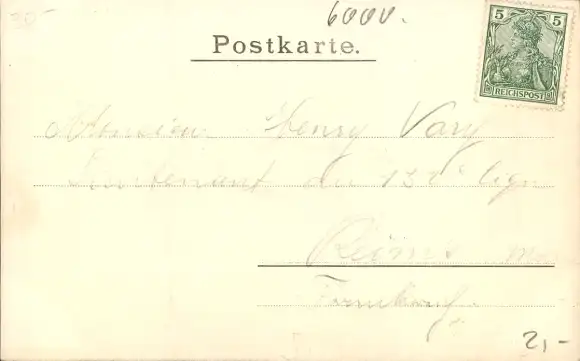 30-
6000.
Postkarte.
5 5
REICHSPOST
Monsieur Henry Vary
Lieutenant au 132e lign
Reims
2,-